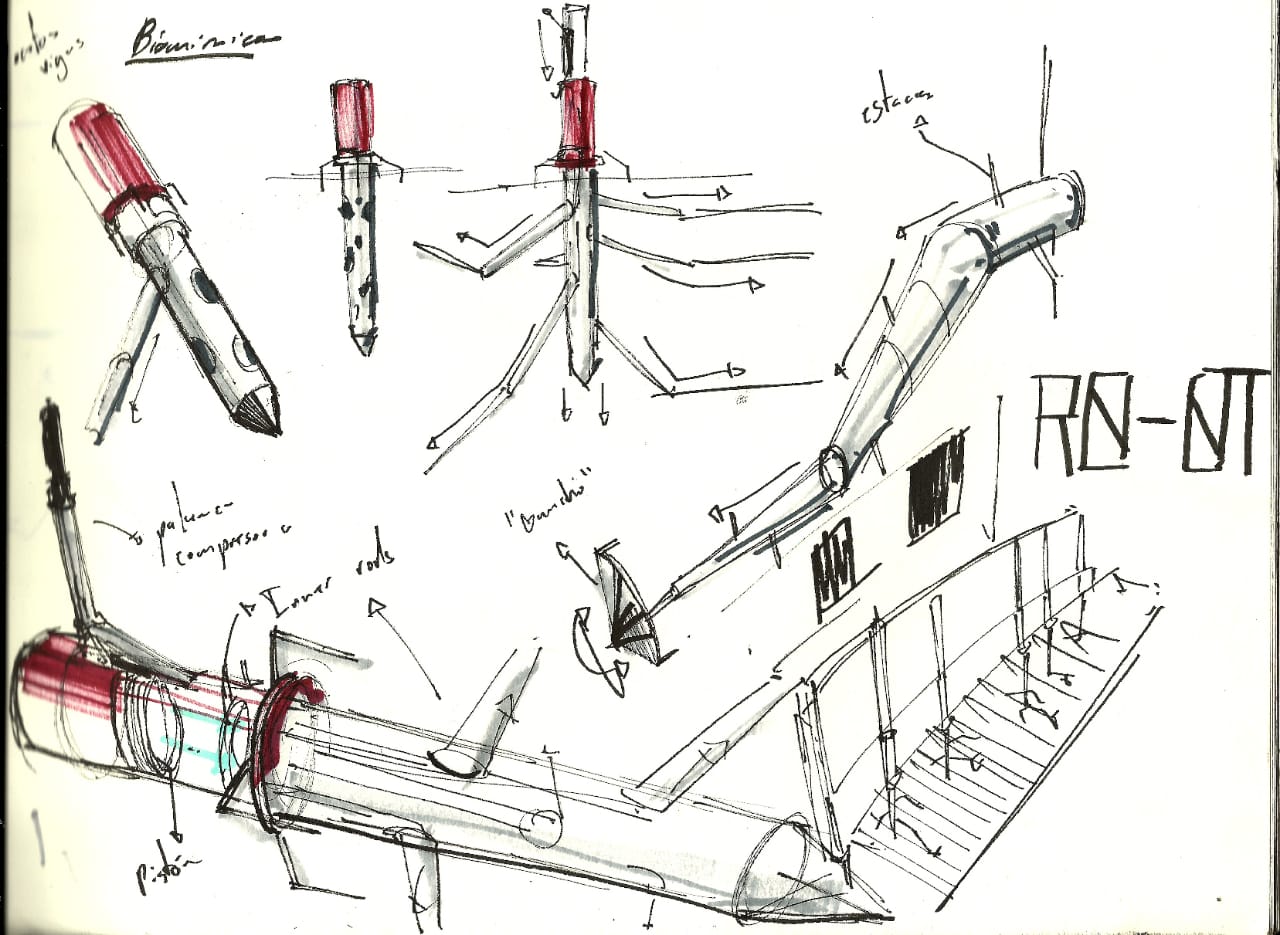 vigas
Biomimica
estacas
RO-OT
palanca
compresora
Inner rods
pistón